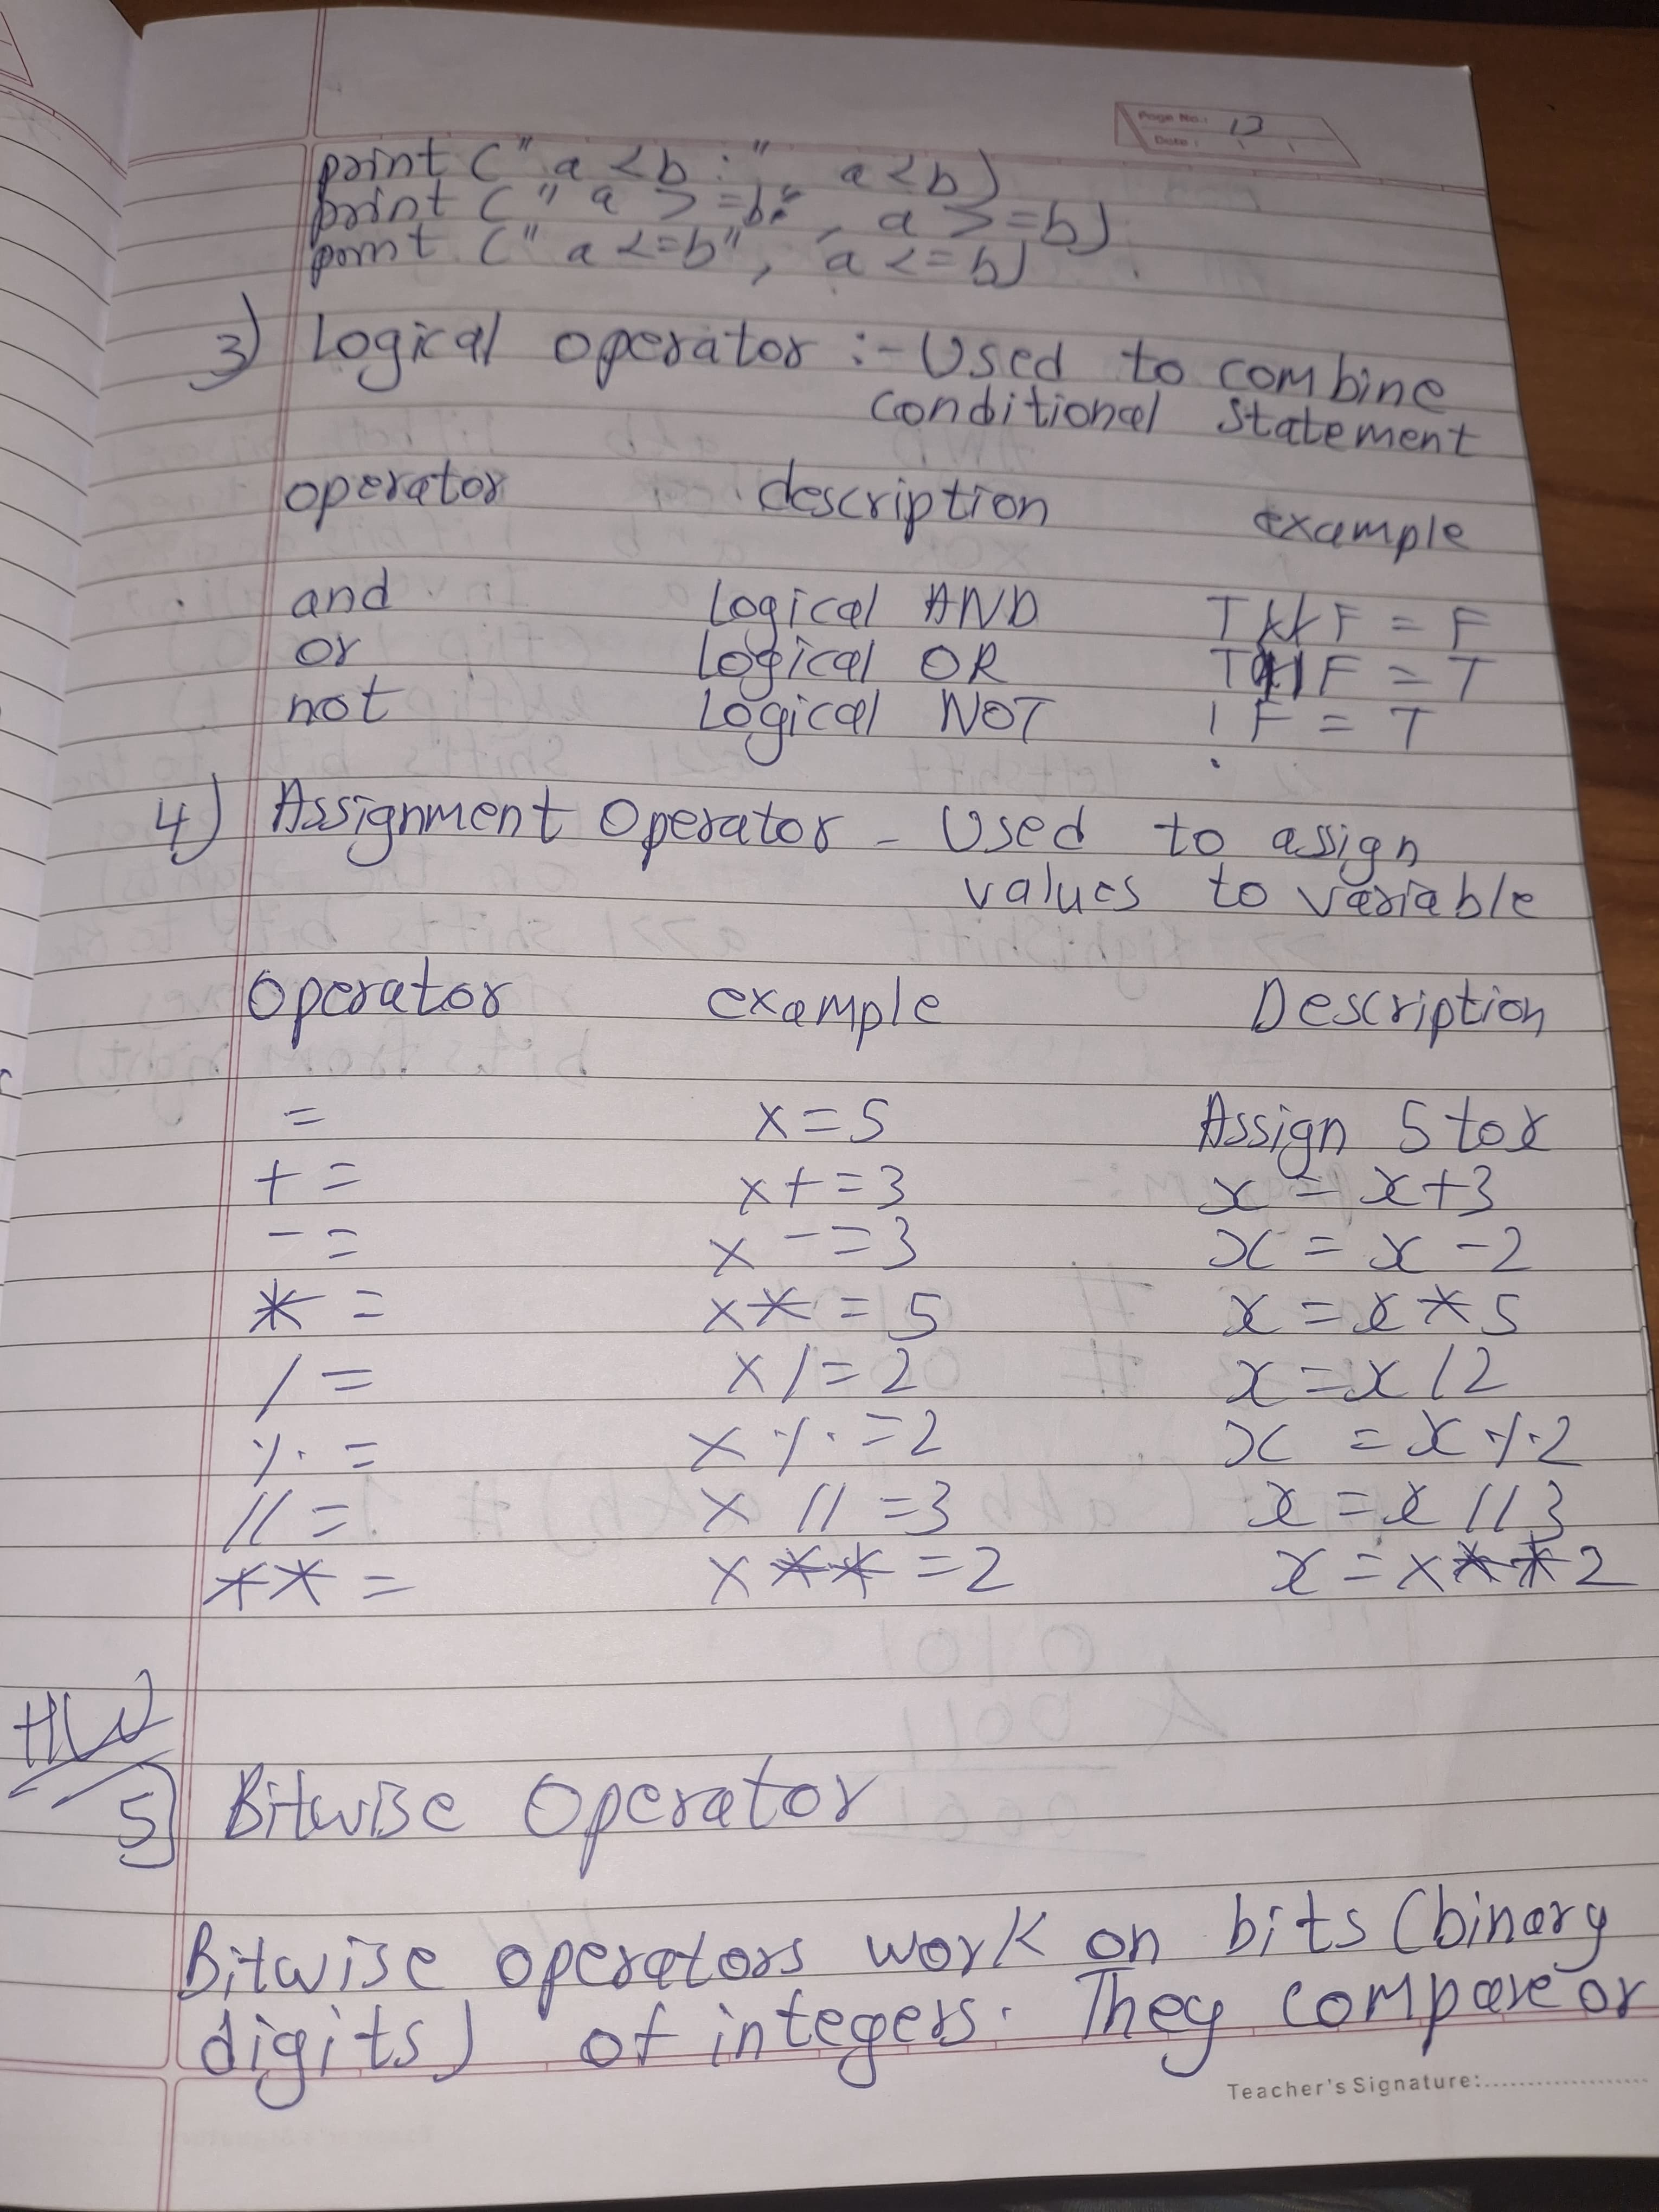 Page No.: 13
Date :
print (" a < b : " a < b)
print (" a > = b: " , a > = b)
print (" a <= b" , a <= b)
3) Logical operator :- Used to combine
conditional Statement
operator description example
and Logical AND T && F = F
or Logical OR T || F = T
not Logical NOT ! F = T
4) Assignment Operator - Used to assign
values to variable
Operator example Description
= x = 5 Assign 5 to x
+ = x + = 3 x = x + 3
- = x - = 3 x = x - 2
* = x * = 5 x = x * 5
/ = x / = 2 x = x / 2
% = x % = 2 x = x % 2
// = x // = 3 x = x // 3
** = x ** = 2 x = x ** 2
HW
5) Bitwise Operator
Bitwise operators work on bits (binary
digits) of integers. They compare or
Teacher's Signature: